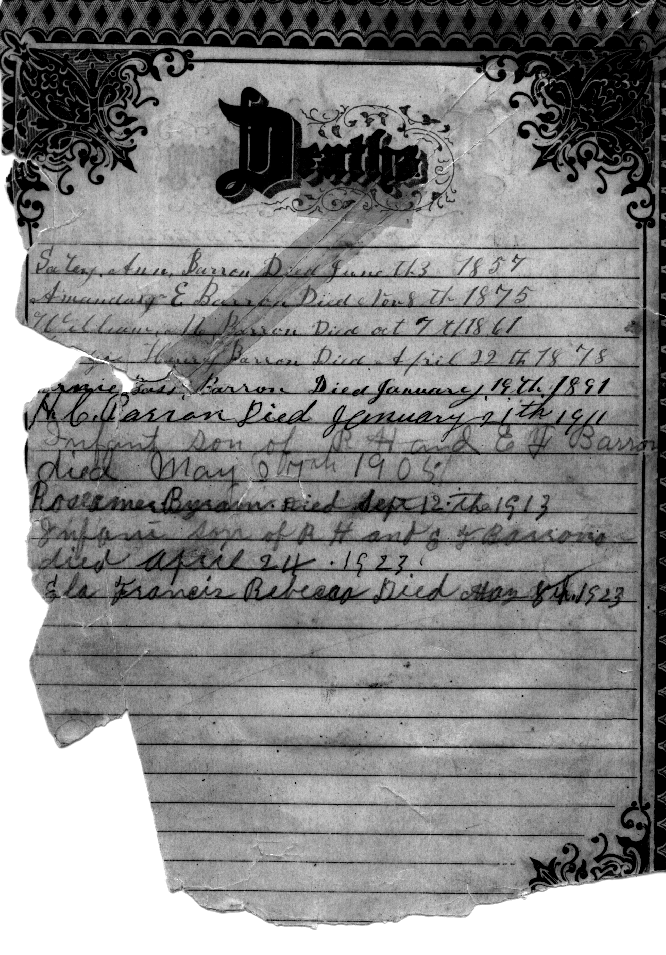 Deaths
Ann Barron Died June th3 1857
E Barron Died Nov 8 th 1875
William M Barron Died oct 7 1861
Henry Barron Died April 22 th 1878
Barron Died January 19th 1891
N. C. Barron Died January 21th 1911
Infant son of R H and E F Barron
died May 1905
Byram Died Sept 12 the 1913
Infant son of R H and E F Barrons
died april 24 . 1923
Ela Francis Rebecca Died May 8th. 1923